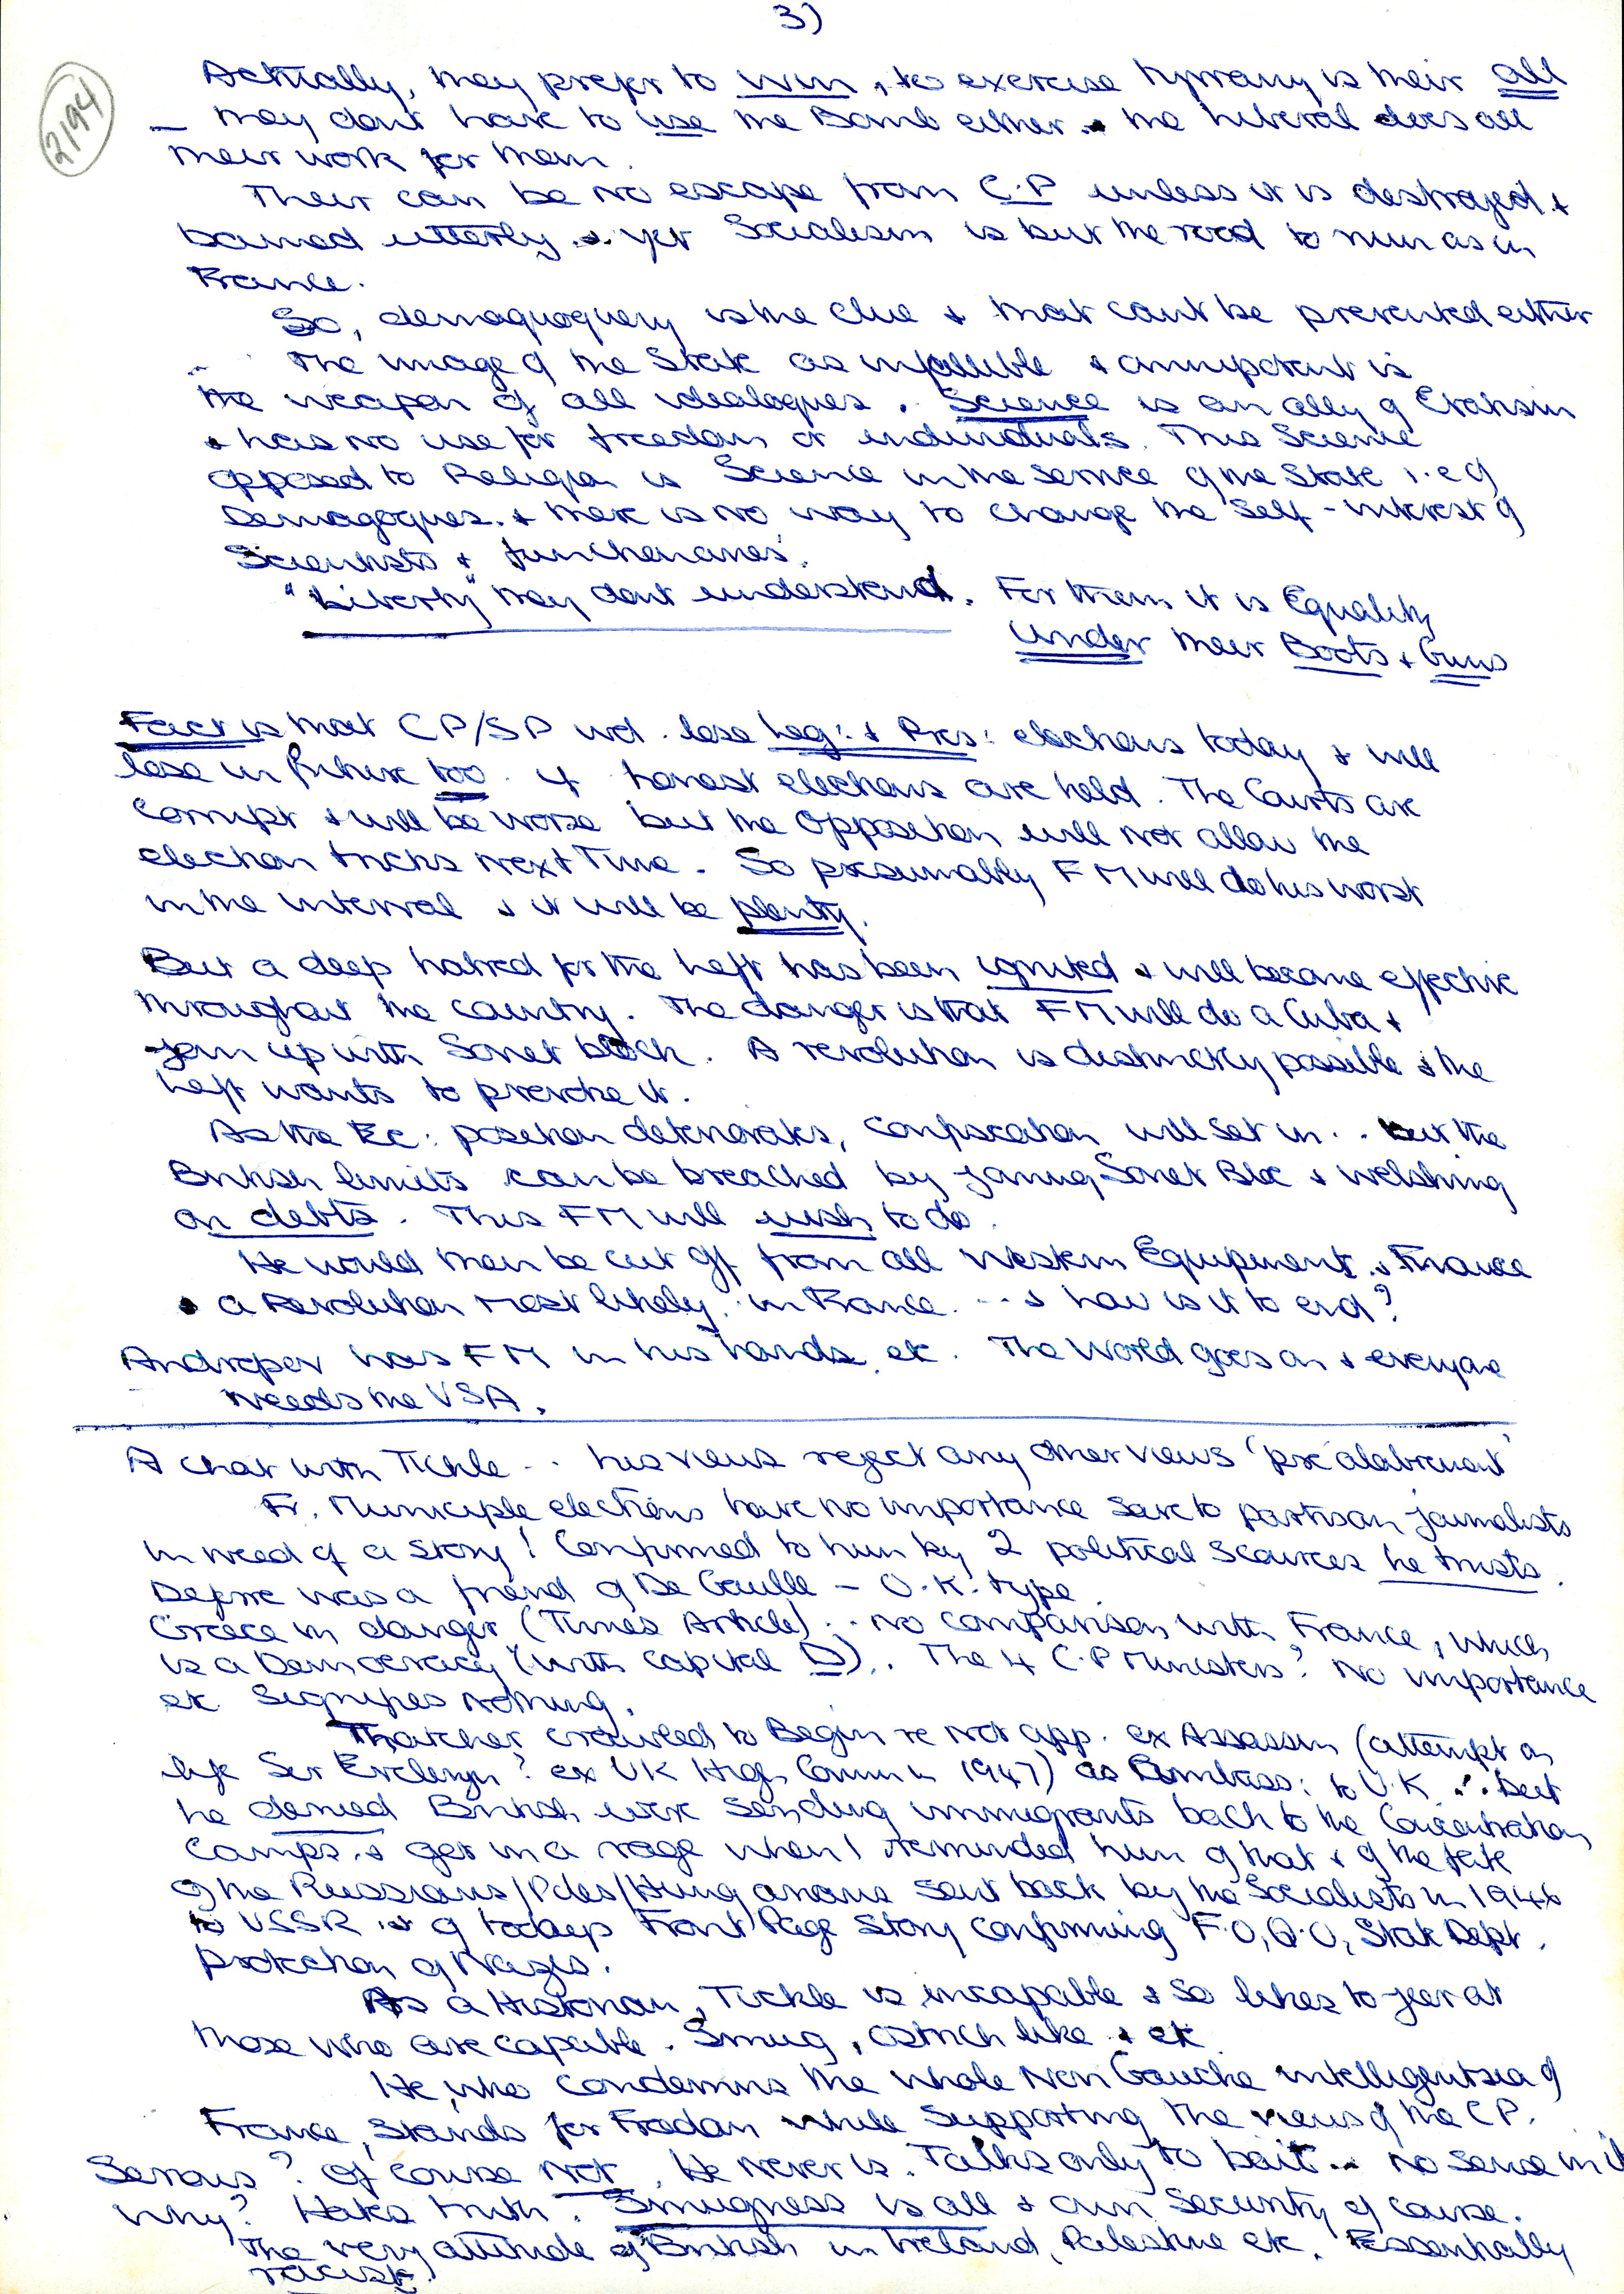 3)
2194
Actually, they prefer to win, to exercise tyranny is their all
— they dont have to use the Bomb either . the Liberal does all
their work for them.
Their can be no escape from C.P unless it is destroyed &
banned utterly . & yet Socialism is but the road to ruin as in
France.
So, demagoguery is the clue & that cant be prevented either
The image of the State as infallible & omnipotent is
the weapon of all idealogues. Science is an ally of Etatism
& has no use for freedom or individuals. This Science
opposed to Religion is Science in the service of the State i.e of
Demagogues. & there is no way to change the self-interest of
Scientists & functionaries'.
"Liberty" they dont understand. For them it is Equality
under their Boots & Guns
Fact is that CP/SP wd. lose Leg: & Pres: elections today & will
lose in future too. if honest elections are held. The Courts are
corrupt & will be worse but the Opposition will not allow the
election tricks next Time. So presumably FM will do his worst
in the interval & it will be plenty.
But a deep hatred for the Left has been ignited & will become effective
throughout the country. The danger is that FM will do a Cuba &
join up with Soviet block. A revolution is distinctly possible & the
Left wants to provoke it.
As the Ec: position deteriorates, confiscation will set in . . but the
British limits can be breached by joining Soviet Bloc & welshing
on debts. This FM will wish to do.
He would then be cut off from all Western Equipment & Finance
& a Revolution most likely. in France. ... & how is it to end?
Andropov has FM in his hands etc. The World goes on & everyone
needs the USA.
A chat with Tickle . . his views reject any other views 'préalablement'
Fr. Municiple elections have no importance save to partisan journalists
in need of a story! Confirmed to him by 2 political sources he trusts.
Deferre was a friend of De Gaulle — O.K. type.
Greece in danger (Times Article) . . no comparison with France, which
is a Democracy (with capital D). The 4 C.P Ministers? No importance
etc. Signifies nothing.
Thatcher crawled to Begin re not app. ex Assassin (attempt on
life Ser ? ex UK High Comm in 1947) as Ambass: to U.K. . . but
he denied British were sending immigrants back to the Concentration
Camps. & got in a rage when I reminded him of that & of the fate
of the Russians/Poles/Hungarians sent back by the Socialists in 1946
to USSR & of todays Front Page Story confirming F.O, Q.O, State Dept.
protection of Nazis.
As a Historian, Tickle is incapable & so likes to jeer at
those who are capable. Smug, ostrich like & etc.
He, who condemns the whole Non Gauche intelligentsia of
France, stands for Freedom while supporting the views of the CP.
Serious? Of course not. He never is. Talks only to bait ... no sense in it
Why? Hates truth. Smugness is all & own Security of course.
The very attitude of British in Ireland, Palestine etc. Essentially
racist.